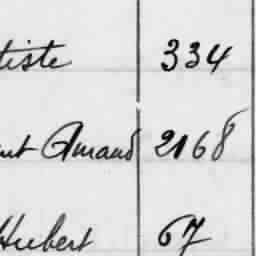 tiste 334
ut Amand 2168
Hubert 67